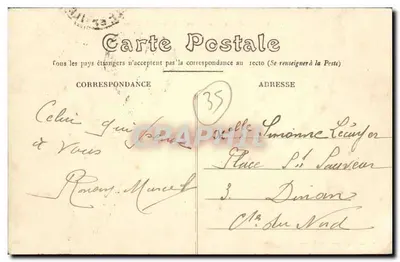 Carte Postale
Tous les pays étrangers n'acceptent pas la correspondance au recto (Se renseigner à la Poste)
CORRESPONDANCE
ADRESSE
35
Celui qui pense
à vous
Marcel
Melle Simonne
Place St Sauveur
3. Dinan
Ctes du Nord